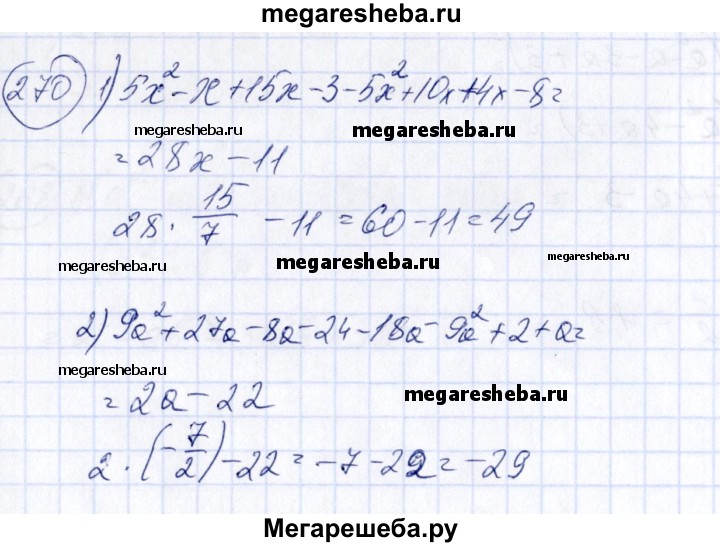 megaresheba.ru
270 1) 5x² - x + 15x - 3 - 5x² + 10x + 4x - 8 =
megaresheba.ru megaresheba.ru
= 28x - 11
28 · 15/7 - 11 = 60 - 11 = 49
megaresheba.ru megaresheba.ru megaresheba.ru
2) 9a² + 27a - 8a - 24 - 18a - 9a² + 2 + a =
megaresheba.ru megaresheba.ru
= 2a - 22
2 · (-7/2) - 22 = -7 - 22 = -29
Мегарешеба.ру